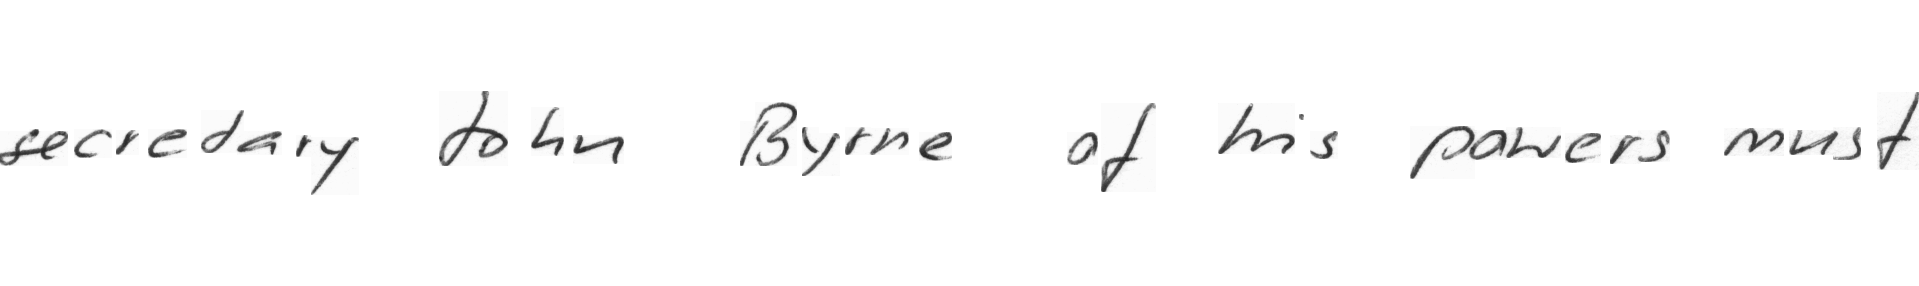 secredary John Byrne of his powers must